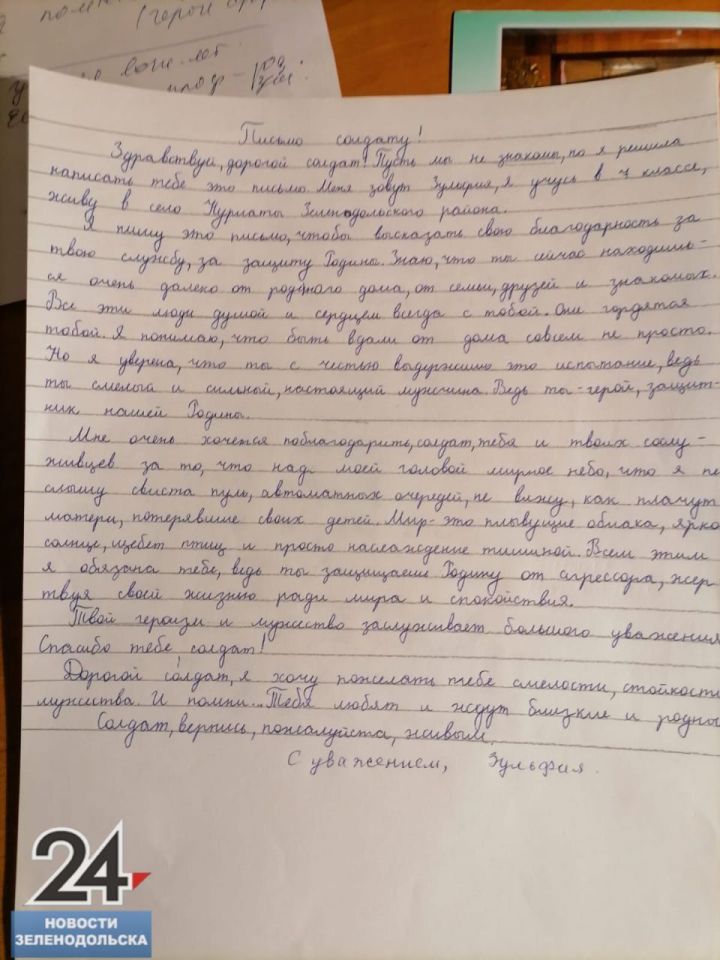 (герои
воен. лет.
Письмо солдату!
Здравствуй, дорогой солдат! Пусть мы не знакомы, но я решила
написать тебе это письмо. Меня зовут Зульфия, я учусь в 7 классе,
живу в село Нурлаты Зеленодольского района.
Я пишу это письмо, чтобы высказать свою благодарность за
твою службу, за защиту Родины. Знаю, что ты сейчас находишь-
ся очень далеко от родного дома, от семьи, друзей и знакомых.
Все эти люди думой и сердцем всегда с тобой. Они гордятся
тобой. Я понимаю, что быть вдали от дома совсем не просто.
Но я уверена, что ты с честью выдержишь это испытание, ведь
ты смелый и сильный, настоящий мужчина. Ведь ты - герой, защит-
ник нашей Родины.
Мне очень хочется поблагодарить, солдат, тебя и твоих сослу-
живцев за то, что над моей головой мирное небо, что я не
слышу свиста пуль, автоматных очередей, не вижу, как плачут
матери, потерявшие своих детей. Мир - это плывущие облака, ярко
солнце, щебет птиц и просто наслаждение тишиной. Всем этим
я обязана тебе, ведь ты защищаешь Родину от агрессора, жер
твуя своей жизнью ради мира и спокойствия.
Твой героизм и мужество заслуживает большого уважения
Спасибо тебе солдат!
Дорогой солдат, я хочу пожелать тебе смелости, стойкости
мужества. И помни... Тебя любят и ждут близкие и родны
Солдат, вернись, пожалуйста, живым.
С уважением, Зульфия.
24
НОВОСТИ
ЗЕЛЕНОДОЛЬСКА